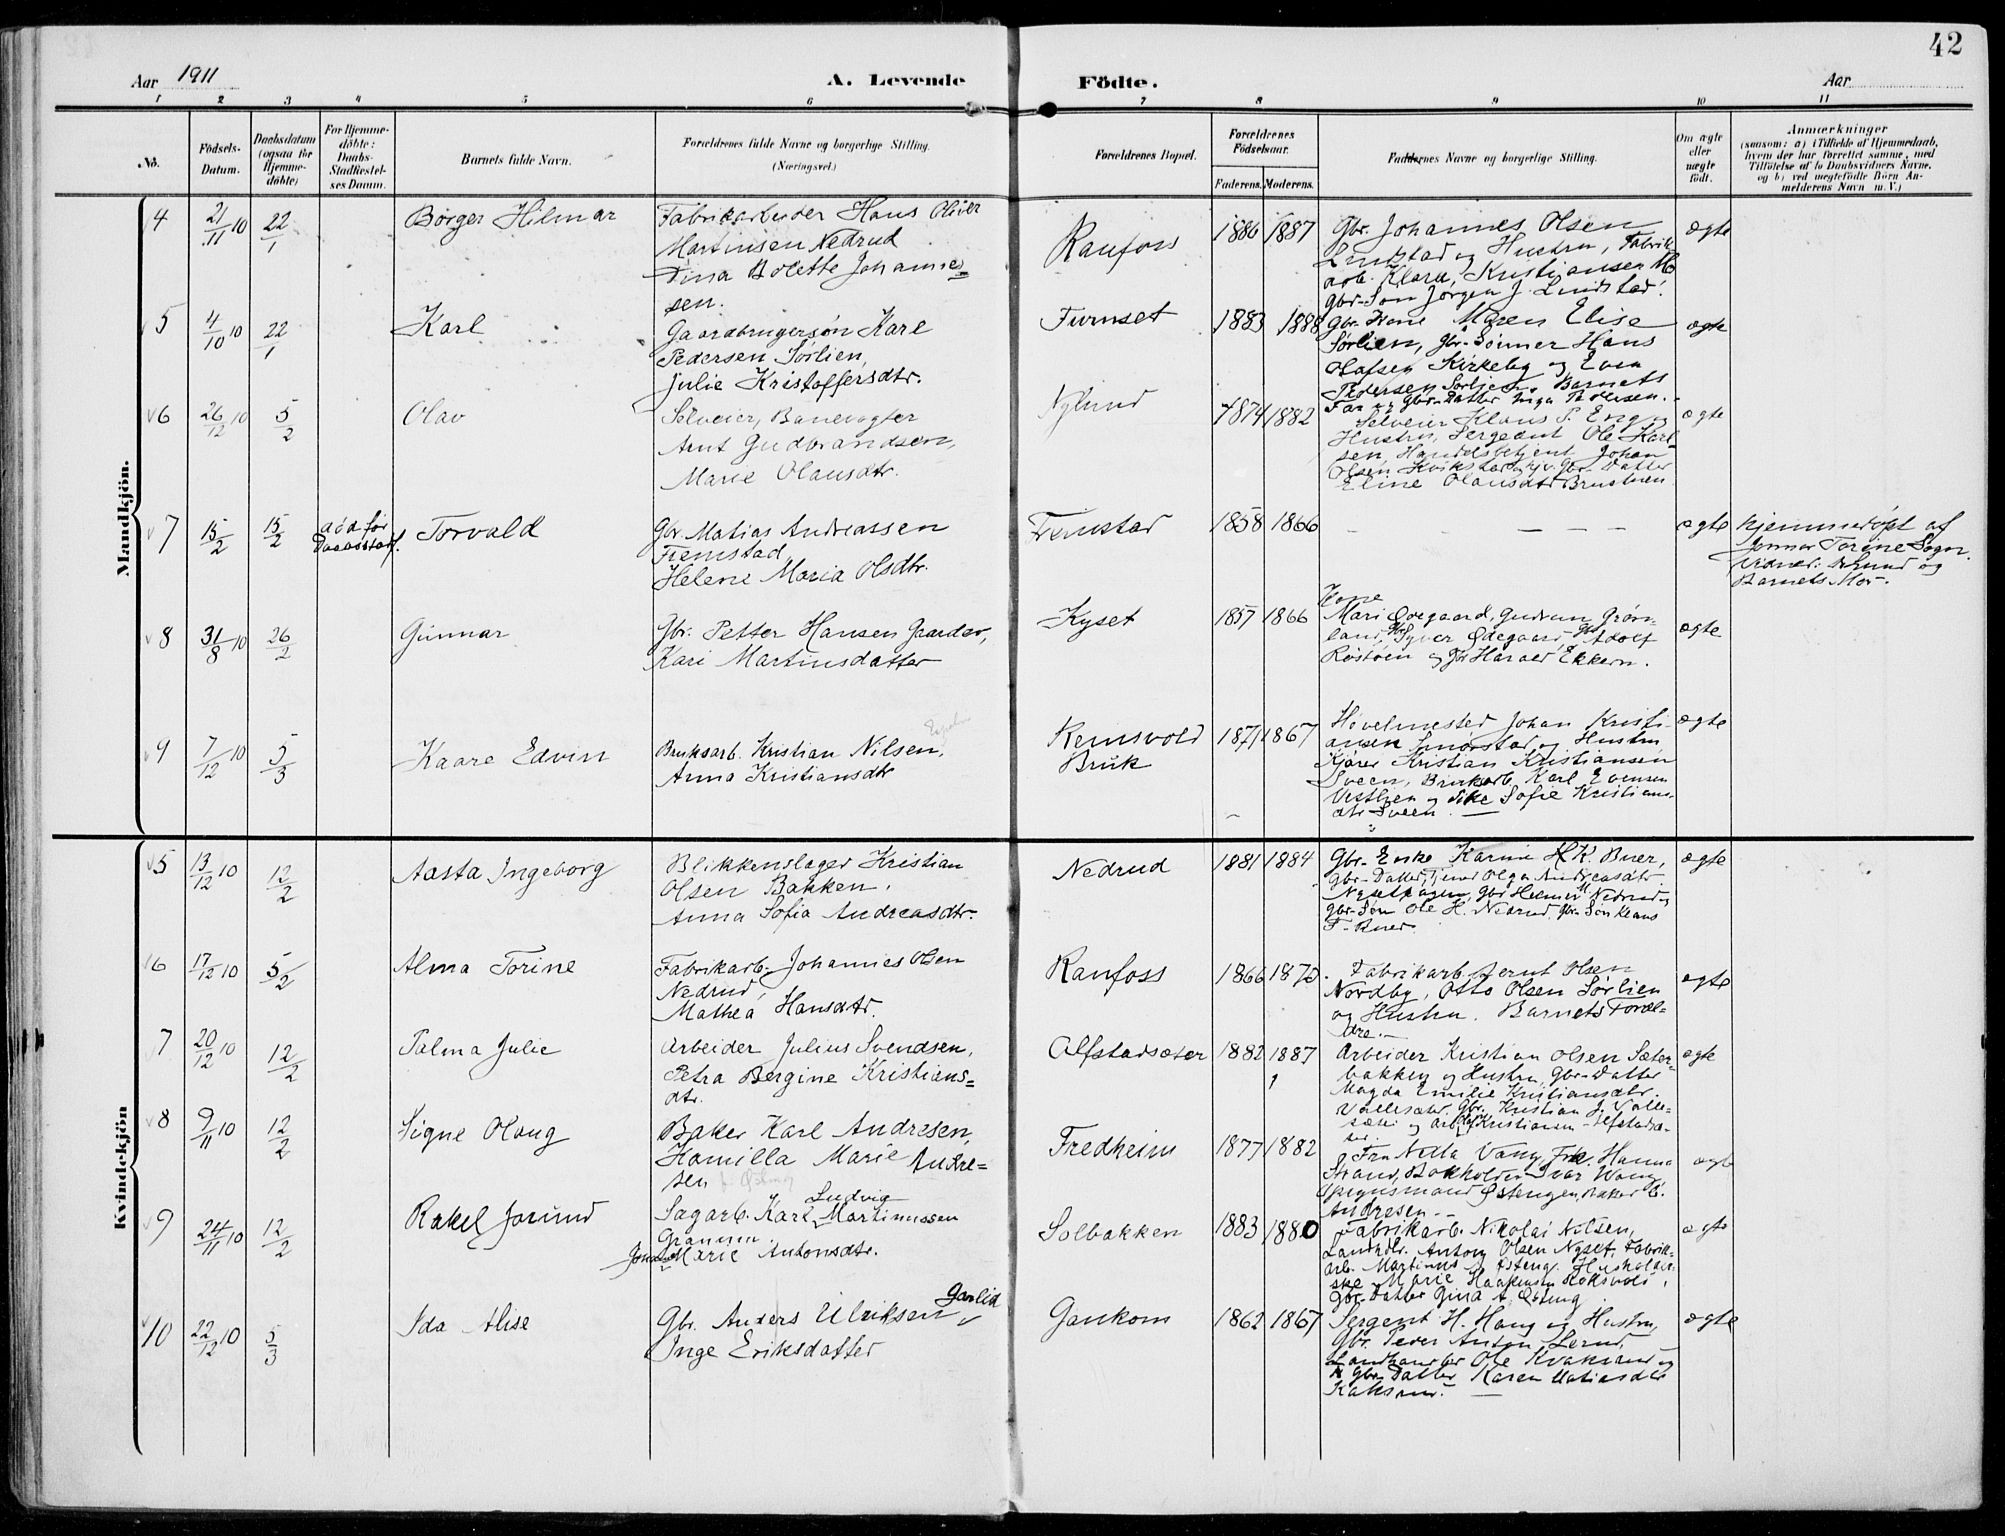 42
Aar 1911
A. Levende Födte.
Aar
1 2 3 4 5 6 7 8 9 10 11
No.
Födsels-Datum.
Daabsdatum (ogsaa for Hjemme-döbte)
For Hjemme-döbte: Daabs-Stadfestel-ses Datum.
Barnets fulde Navn.
Forældrenes fulde Navne og borgerlige Stilling.
(Næringsvei.)
Forældrenes Bopæl.
Forældrenes Födselsaar.
Faderens. Moderens.
Faddernes Navne og borgerlige Stilling.
Om ægte eller uægte födt.
Anmærkninger
(saasom: a) i Tilfælde af Hjemmedaab,
hvem der har forrettet samme, med
Tilföielse af to Daabsvidners Navne,
og b) ved uægtefödte Börn An-
melderens Navn m. V.)
Mandkjön.
4 21/11 10 22/1 Börger Hilmar
Fabrikarbeider Hans Oliver
Martinsen Nedrud
Tina Bolette Johanne-
sen.
Raufoss 1886 1887
Gbr. Johannes Olsen
Lundstad og Hustru, Fabrik-
arb. Klara, Kristiansen
Gbr-Søn Jørgen J. Lundstad.
ægte
5 4/10 10 22/1 Karl
Gaardbrugersøn Karl
Pedersen Sørlien,
Julie Kristoffersdtr.
Furuset 1883 1888
Gbr. Kone Maren Elise
Sørlien, Gbr-Sønner Hans
Olafsen Kirkeby og Even
Pedersen Sørlien. Barnets
Far og Gbr-Datter Inga Pedersen.
ægte
6 26/12 10 5/2 Olav
Selveier, Banevogter
Arnt Gudbrandsen,
Marie Olausdtr.
Nylund 1874 1882
Selveier Klaus P. Eng og
Hustru, Sergeant Ole Karl-
sen, Handelsbetjent Johan
Olsen Gbr. Datter
Eline Olausdtr
ægte
7 15/2 15/2 død før Daabsstadf. Torvald
Gbr. Matias Andreassen
Fremstad,
Helene Maria Olsdtr.
Fremstad 1858 1866
— — — —
ægte
hjemmedøpt af
Jormor Torine Sogn.
Vidner: og
Barnets Mor.
8 31/8 10 26/2 Gunnar
Gbr. Petter Hansen Gaarder,
Kari Martinsdatter
Kyset 1857 1866
Kone
Mari Ødegaard, Gudrun Grøn-
land, Gbr Syver Ødegaard, Gbr Adolf
Røstøen og Gbr Harald Ekkern.
ægte
9 7/12 10 5/3 Kaare Edvin
Bruksarb. Kristian Nilsen,
Anna Kristiansdtr
Reinsvold
Bruk 1871 1867
Høvelmester Johan Kristi-
ansen Smørstad og Hustru
Kjører Kristian Kristiansen
Sveen, Bruksarb. Karl Evensen
Vestlien og Pike Sofie Kristians-
dtr Sveen. —
ægte
Kvindekjön
5 13/12 10 12/2 Aasta Ingeborg
Blikkenslager Kristian
Olsen Bakken,
Anna Sofia Andreasdtr.
Nedrud 1881 1884
Gbr. Enke Karine H.K. Buer,
Gbr-Datter, Tjener Olga Andreasdtr
Nysethagen, Gbr Helmer M. Nedrud,
Gbr-Søn Ole H. Nedrud, Gbr-Søn Klaus
F. Buer.
ægte
6 17/12 10 5/2 Alma Torine
Fabrikarb. Johannes Olsen
Nedrud,
Mathea Hansdtr.
Raufoss 1866 1870
Fabrikarb. Bernt Olsen
Nordby, Otto Olsen Sørlien
og Hustru. Barnets Foræl-
dre. —
ægte
7 20/12 10 12/2 Palma Julie
Arbeider Julius Svendsen,
Petra Bergine Kristians-
dtr.
Alfstadsæter 1882 1887
Arbeider Kristian Olsen Sæter-
bakken og Hustru, Gbr-Datter
Magda Emilie Kristiansdtr.
Vallesæter. Gbr. Kristian J. Valle-
sæter og arb. Kristiansen Alfstadsæ-
ter.
ægte
8 9/11 10 12/2 Signe Olaug
Baker Karl Andresen,
Kamilla Marie Andre-
sen
Fredheim 1877 1882
Fru Netta Vang, Frk. Hanna
Strand, Bokholder Ivar Wang,
Opsynsmand Østengen, Baker E.
Andresen. —
ægte
9 24/11 10 12/2 Rakel Jorund
Sagarb. Karl Ludvig Martinussen
Granum.
Marie Antonsdtr.
Solbakken 1883 1880
Fabrikarb. Nikolai Nilsen,
Landhdlr. Anton Olsen Nyset, Fabrik-
arb. Martinus Østeng. Husholder-
ske Marie Haakensen Roksvold,
Gbr-Datter Gina A. Østeng.
ægte
10 22/12 10 5/3 Ida Alise
Gbr. Anders Ulriksen Garlid,
Inge Eriksdatter
Gaukom 1862 1867
Sergent H. Haug og Hustru,
Gbr. Peder Anton Lerud,
Landhandler Ole Kvaksrud og
Gbr Datter Karen Matiasdtr
ægte